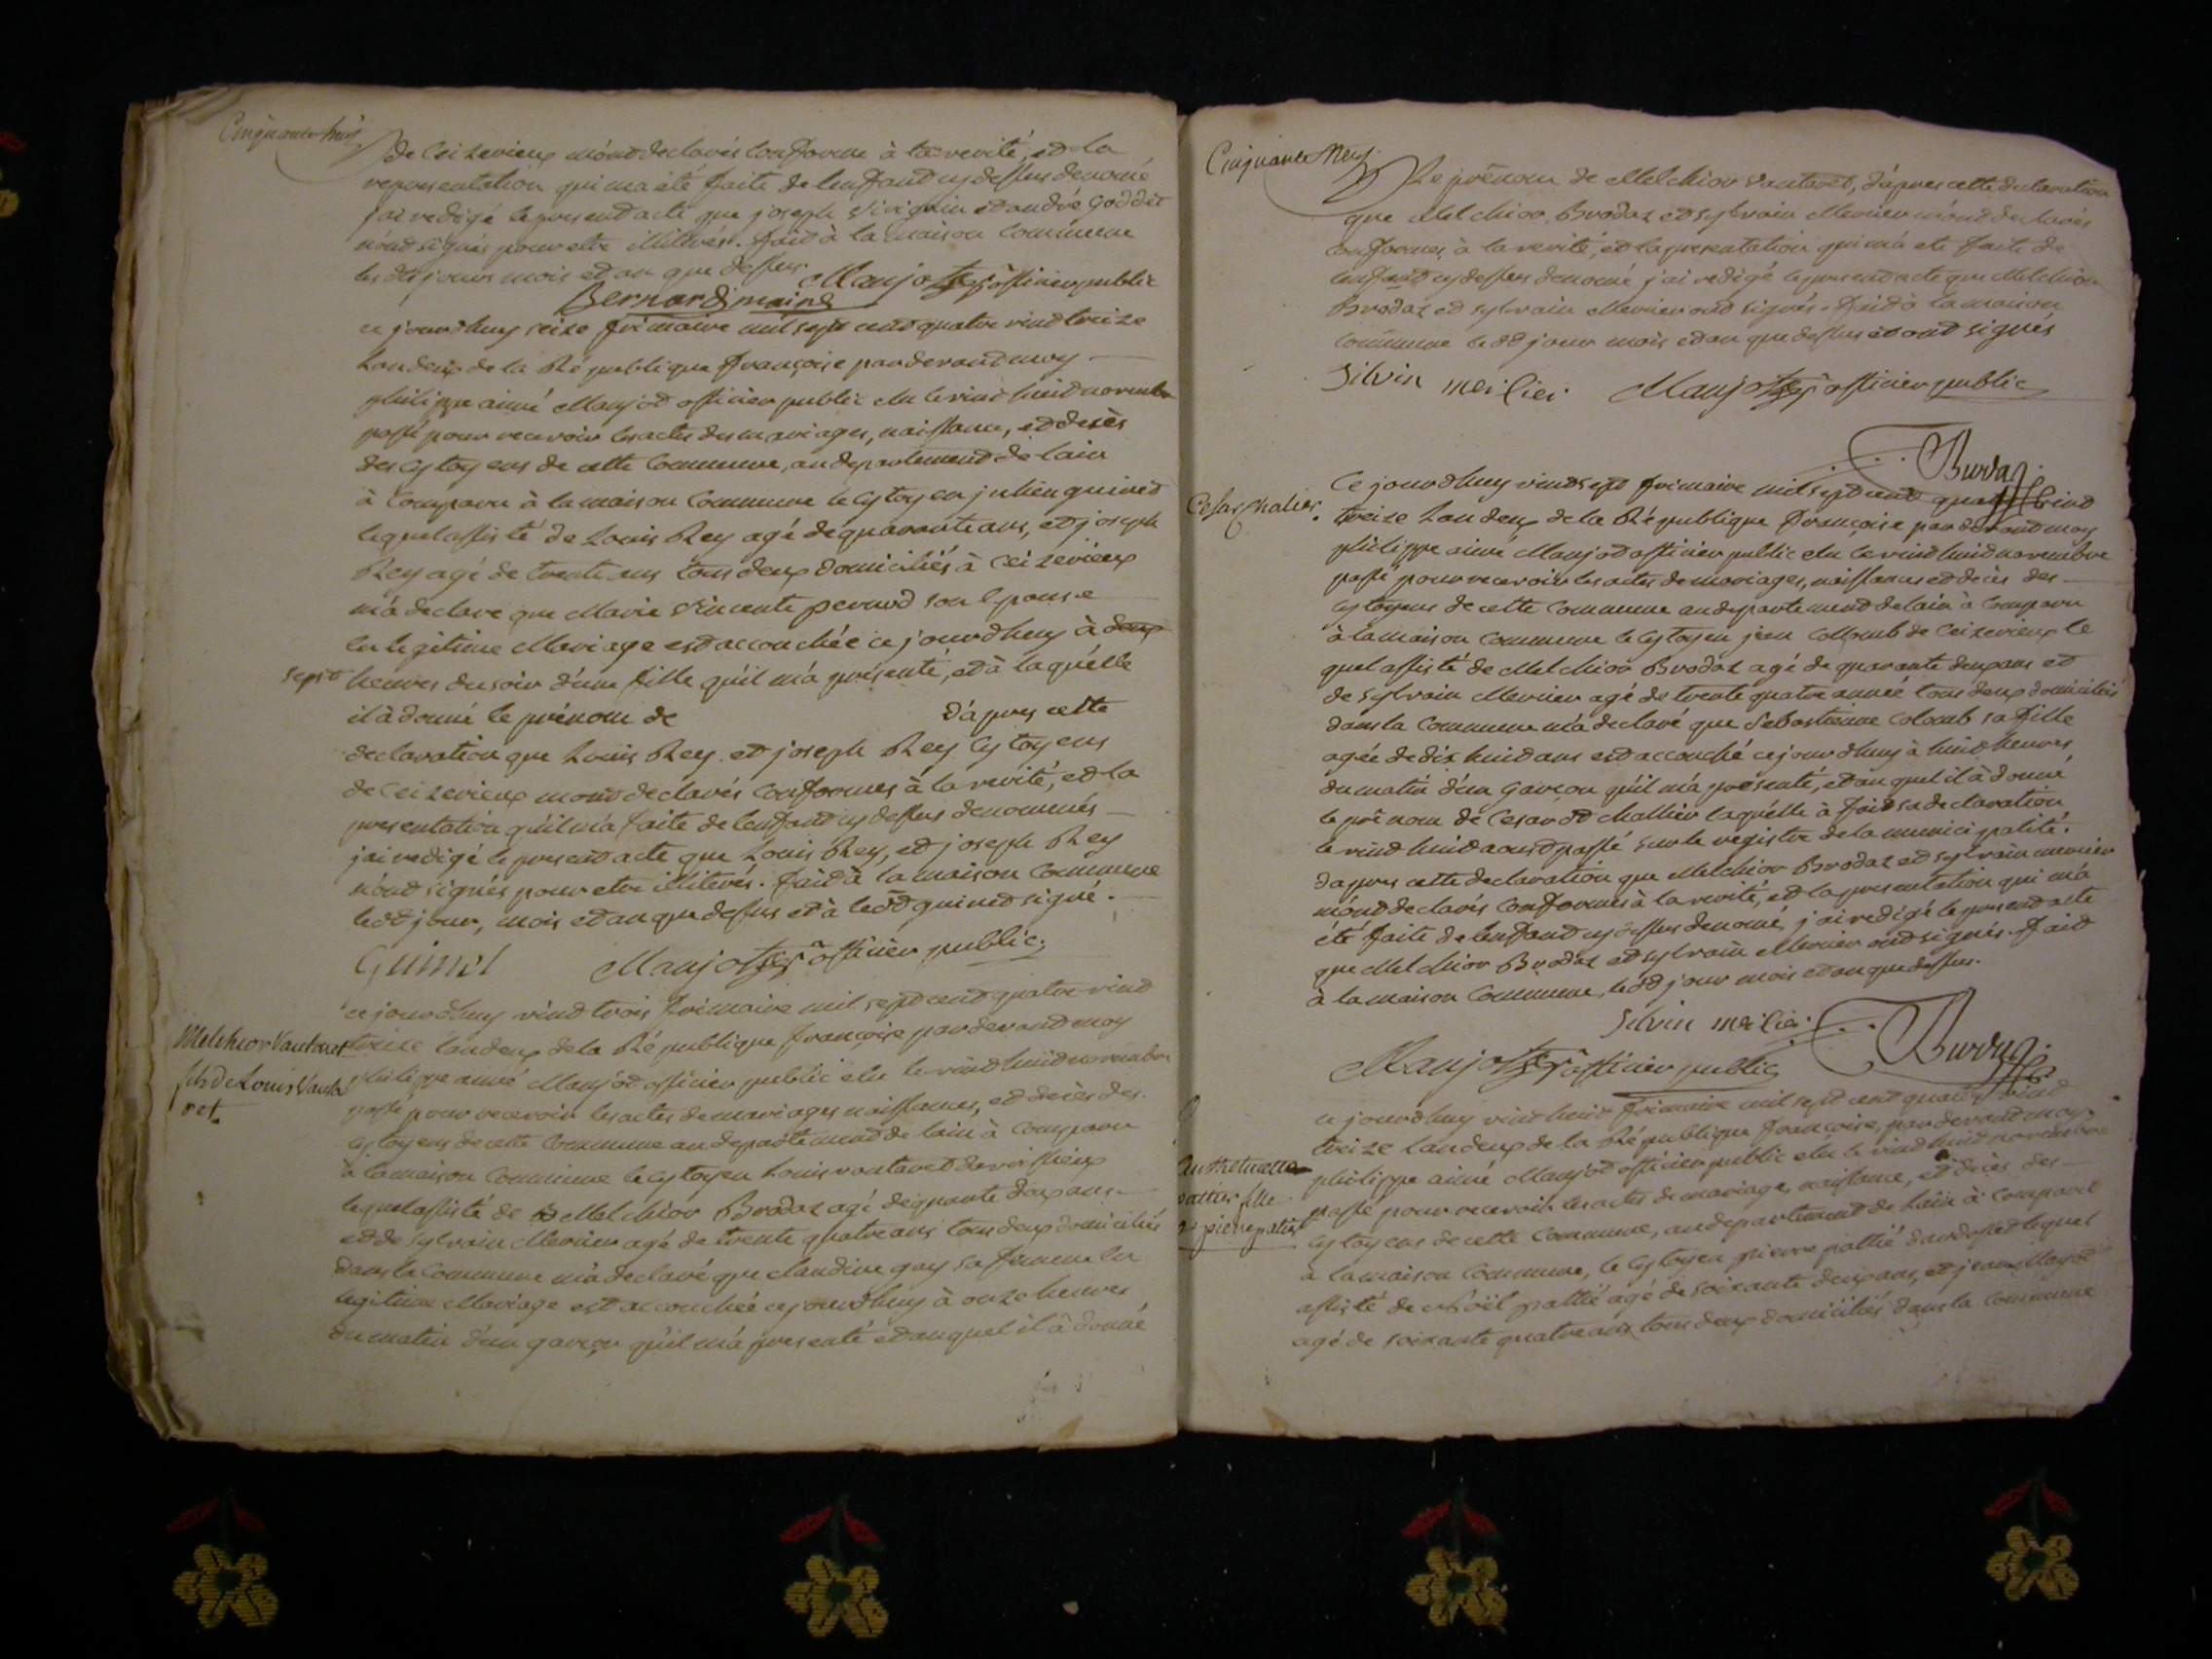 Cinquante huit
de Ceizerieux m'ont declarés conforme à la verité, et la
representation qui ma été faite de lenfant cy dessus denomé
j'ai redigé le present acte que joseph et andré
n'ont signés pour etre illiterés. fait à la maison Commune
les dit jours mois et an que dessus. Maujot officier public
Bernard maire
ce jourdhuy seize frimaire mil sept cent quatre vint treize
Lan deux de la République françoise par devant moy
philippe aimé Maujot officier public elu le vint huit novembre
passé pour recevoir les actes des mariages, naissance, et decès
des Cytoyens de cette Commune, au departement de lain
à comparu à la maison Commune le Cytoyen julien guinet
lequel assisté de Louis Rey agé de quarante ans, et joseph
Rey agé de trente ans tous deux domiciliés à Ceizerieux
m'a declaré que Marie Vincente pernod son Epouse
en legitime Mariage est accouchée ce jourdhuy à deux
sept heures du soir d'une fille qu'il m'a présenté, et à laquelle
il à donné le prénom de d'apres cette
declaration que Louis Rey et joseph Rey Cytoyens
de Ceizerieux mont declarés conformes à la verité, et la
presentation qu'il m'a faite de lenfant cy dessus denommés
j'ai redigé le present acte que Louis Rey, et joseph Rey
n'ont signés pour etre illiterés. fait à la maison Commune
ledt jour, mois et an que dessus et à ledt guinet signé.
Guinet Maujot officier public
ce jourdhuy vint trois frimaire mil sept cent quatre vint
Melchior Vantaret treize landeux de la République françoise par devant moy
fils de Louis Vanta philippe aimé Maujot officier public elu le vint huit novembre
ret passé pour recevoir les actes de mariages naissances, et decès des
Cytoyens de cette Commune au departement de lain à comparu
à la maison Commune le Cytoyen Louis vantaret
lequel assisté de Melchior Brodaz agé de quarante deux ans
et de sylvain Mercier agé de trente quatre ans tous deux domiciliés
dans la Commune m'a declaré que claudine gay sa femme en
legitime Mariage est accouchée ce jourdhuy à onze heures
du matin d'un garçon qu'il m'a presenté et auquel il à donné
Cinquante Neuf.
Le prénom de Melchior Vantaret, d'apres cette declaration
que Melchior Brodaz et sylvain Mercier m'ont declarés
conformes à la verité, et la presentation qui m'a eté faite de
lenfant cy dessus denomé j'ai redigé le present acte que Melchior
Brodaz et sylvain Mercier ont signés. fait à la maison
Commune ledt jour mois et an que dessus et ont signés
Silvin meilier Maujot officier public
Burdaz
ce jourdhuy vint sept frimaire mil sept cent quatre vint
Cesar Malier. treize Landeux de la République françoise par devant moy
philippe aimé Maujot officier public elu le vint huit novembre
passé pour recevoir les actes de mariages, naissances et decès des
Cytoyens de cette Commune au departement de lain à comparu
à la maison Commune le Cytoyen jean Collomb de Ceizerieux le
quel assisté de Melchior Brodaz agé de quarante deux ans et
de sylvain Mercier agé de trente quatre année tous deux domiciliés
dans la Commune m'a declaré que Sebastienne Colomb sa fille
agée de dix huit ans est accouché ce jourdhuy à huit heures
du matin d'un garçon qu'il m'a présenté, et auquel il à donné
le prénom de Cesar Mallier laquelle à fait sa declaration
le vint huit aoust passé sur le registre de la municipalité.
d'apres cette declaration que Melchior Brodaz et sylvain mercier
m'ont declarés conformes à la verité, et la presentation qui m'a
été faite de lenfant cy dessus denomé j'ai redigé le present acte
que Melchior Brodaz et sylvain Mercier ont signés. fait
à la maison Commune, ledt jour mois et an que dessus.
Silvin meilier Burdaz
Maujot officier public
ce jourdhuy vint huit frimaire mil sept cent quatre vint
treize landeux de la République françoise, par devant moy
philippe aimé Maujot officier public elu le vint huit novembre
patier fille passé pour recevoir les actes de mariage, naissance, et decès des
de pierre patier Cytoyens de cette Commune, au departement de lain à comparu
à la maison Commune, le Cytoyen pierre pattié lequel
assisté de Noël pattié agé de soixante deux ans, et jean
agé de soixante quatre ans tous deux domiciliés dans la Commune